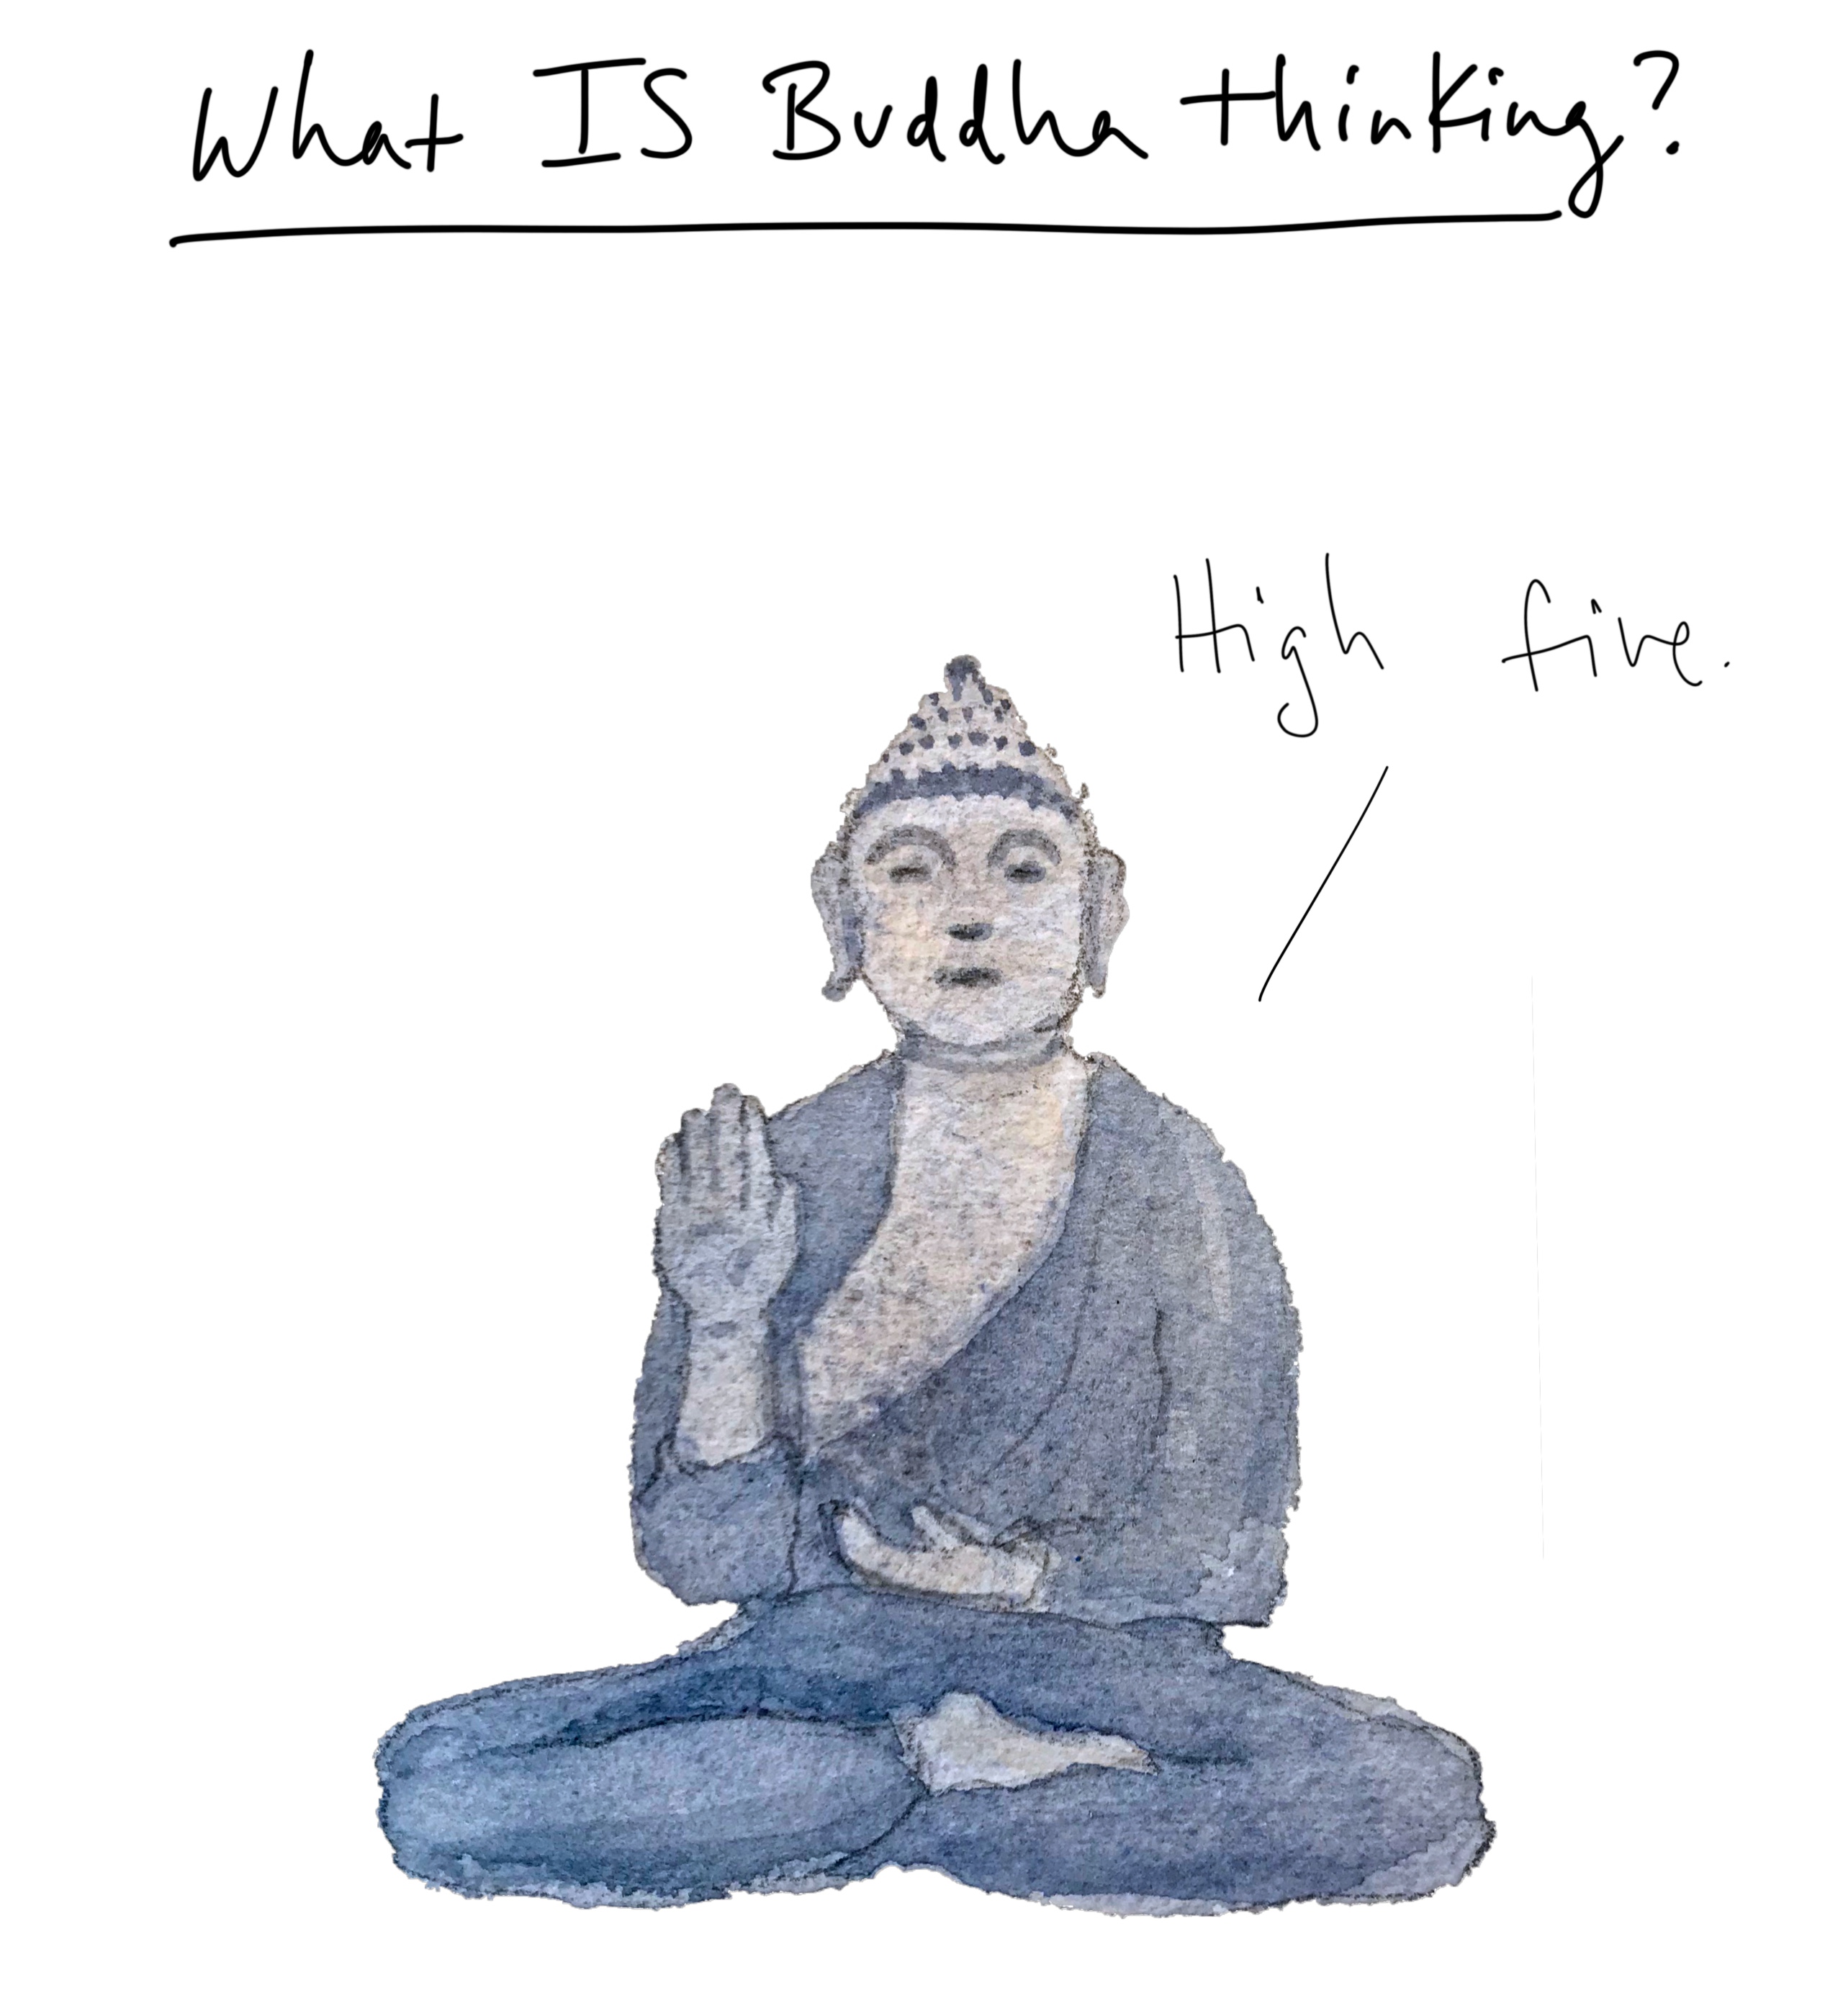 What IS Buddha thinking?
High five.